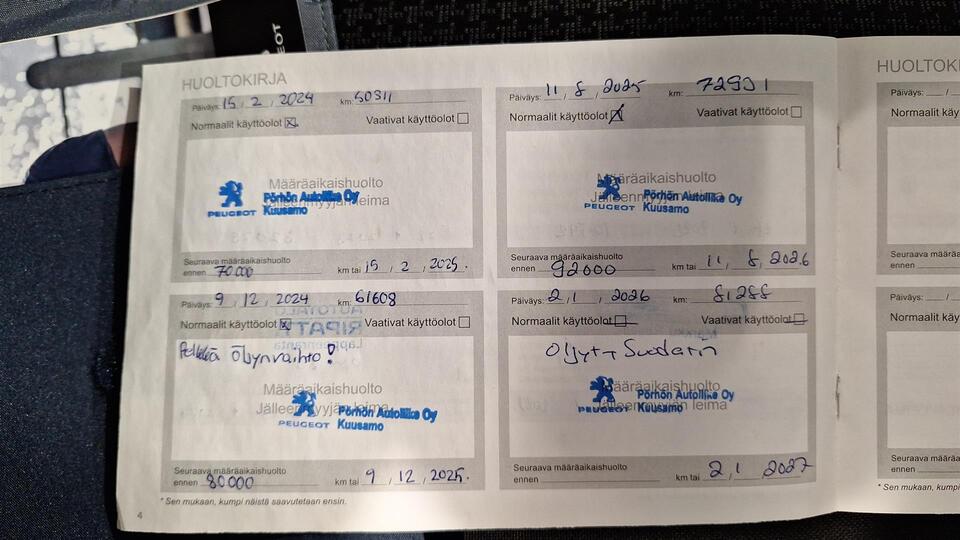 PEUGEOT
HUOLTOKIRJA
Päiväys: 15, 2, 2024 km: 50311
Normaalit käyttöolot ☒ Vaativat käyttöolot ☐
Määräaikaishuolto
Jälleenmyyjän leima
PEUGEOT
Pörhön Autoliike Oy
Kuusamo
Seuraava määräaikaishuolto
ennen 70.000 km tai 15, 2, 2025.
Päiväys: 9, 12, 2024 km: 61608
Normaalit käyttöolot ☒ Vaativat käyttöolot ☐
Pelkkä Öljynvaihto!
Määräaikaishuolto
Jälleenmyyjän leima
PEUGEOT
Pörhön Autoliike Oy
Kuusamo
Seuraava määräaikaishuolto
ennen 80000 km tai 9, 12, 2025.
* Sen mukaan, kumpi näistä saavutetaan ensin.
4
Päiväys: 11, 8, 2025 km: 72931
Normaalit käyttöolot ☒ Vaativat käyttöolot ☐
Määräaikaishuolto
Jälleenmyyjän leima
PEUGEOT
Pörhön Autoliike Oy
Kuusamo
Seuraava määräaikaishuolto
ennen 92000 km tai 11, 8, 2026
Päiväys: 2, 1, 2026 km: 81288
Normaalit käyttöolot ☐ Vaativat käyttöolot ☐
Öljyt+Suodatin
Määräaikaishuolto
Jälleenmyyjän leima
PEUGEOT
Pörhön Autoliike Oy
Kuusamo
Seuraava määräaikaishuolto
ennen km tai 2, 1 2027
HUOLTOKI
Päiväys: /
Normaalit kä
Seuraava määräa
ennen
Päiväys: /
Normaalit kä
Seuraava määräa
ennen
* Sen mukaan, kumpi